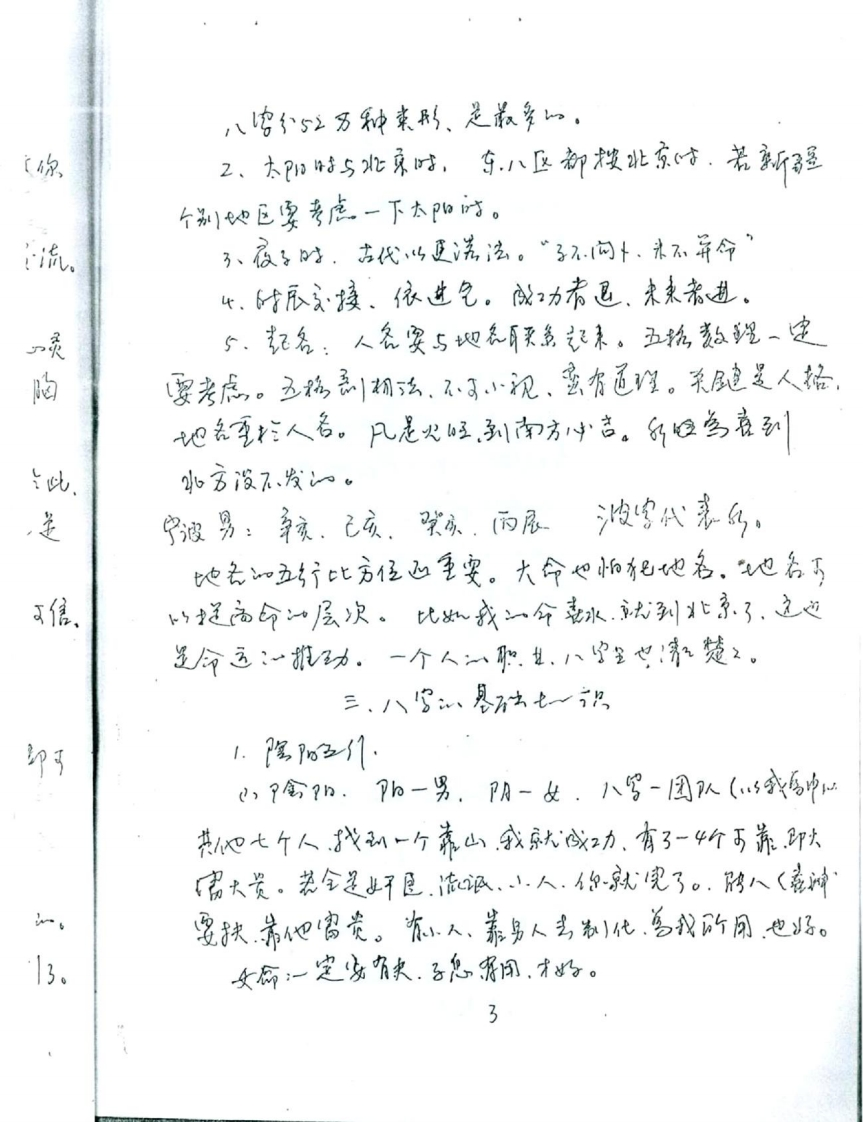 八字分52万种类形、是最多的。
2、太阳时与北京时，东八区都按北京时．若新疆
个别地区要考虑一下太阳时。
3、夜子时．古代以更漏法。“子不问卜．来不算命”
4、时辰交接、依进气。成功者退、未来者进。
5．起名：人名要与地名联系起来。五格数理一定
要考虑。五格剖相法．不可小视、蛮有道理。关键是人格．
地名重於人名。凡是火旺．到南方必吉。 旺为喜到
北方没不发的。
宁波男：辛亥．己亥．癸亥．丙辰 波字代表水。
地名的五行比方位还重要。大命也怕犯地名．地名可
以提高命的层次。比如我的命喜水．就到北京了．这也
是命运的推动。一个人的职业．八字里也清清楚楚。
三、八字的基础知识
1．陰阳五行．
(1)陰阳．阳一男．阴一女．八字一团队（以我为中心
其他七个人．找到一个靠山．我就成功．有3－4个可靠．即大
富大贵。若全是奸臣．流氓．小人．你就完了。 （喜神
要扶．靠他富贵。有小人．靠 人去制化．为我所用．也好。
女命：一定要有夫．子息有用．才好。
3
你
流。
灵
胸
此．
是
可信．
即可
的。
了。